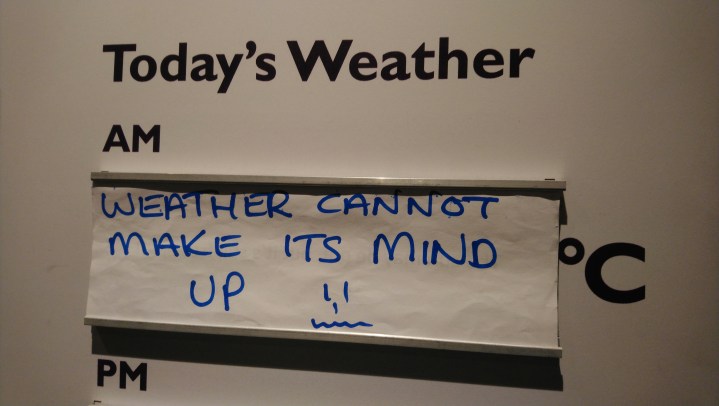 Today's Weather
AM
WEATHER CANNOT
MAKE ITS MIND
UP
°C
PM